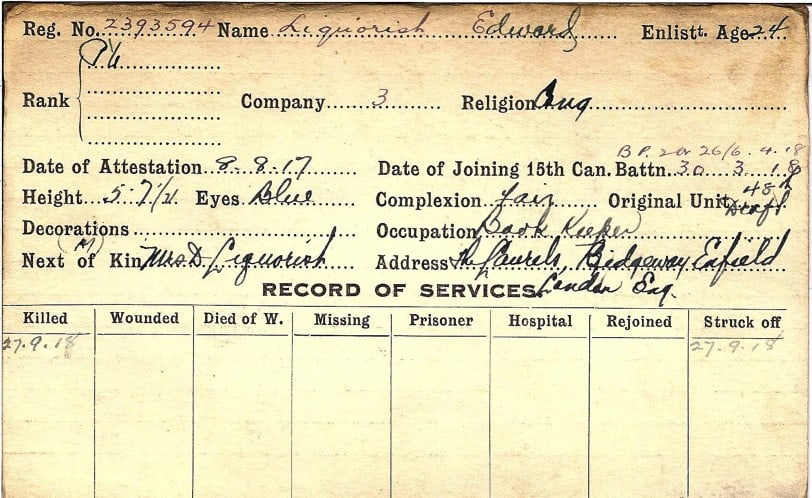 Reg. No. 2393594 Name Liquorish Edward Enlistt. Age 24
Pte
Rank Company 3 Religion Eng
B.P. 2 or 26/6.4.18
Date of Attestation 8-8-17 Date of Joining 15th Can. Battn. 30 3 18
Height 5-7½ Eyes Blue Complexion Fair Original Unit 48th Draft
Decorations Occupation Book Keeper
Next of Kin (M) Mrs D. Liquorish Address The Laurels, Ridgeway, Enfield
RECORD OF SERVICES London Eng.
Killed Wounded Died of W. Missing Prisoner Hospital Rejoined Struck off
27.9.18 27.9.18